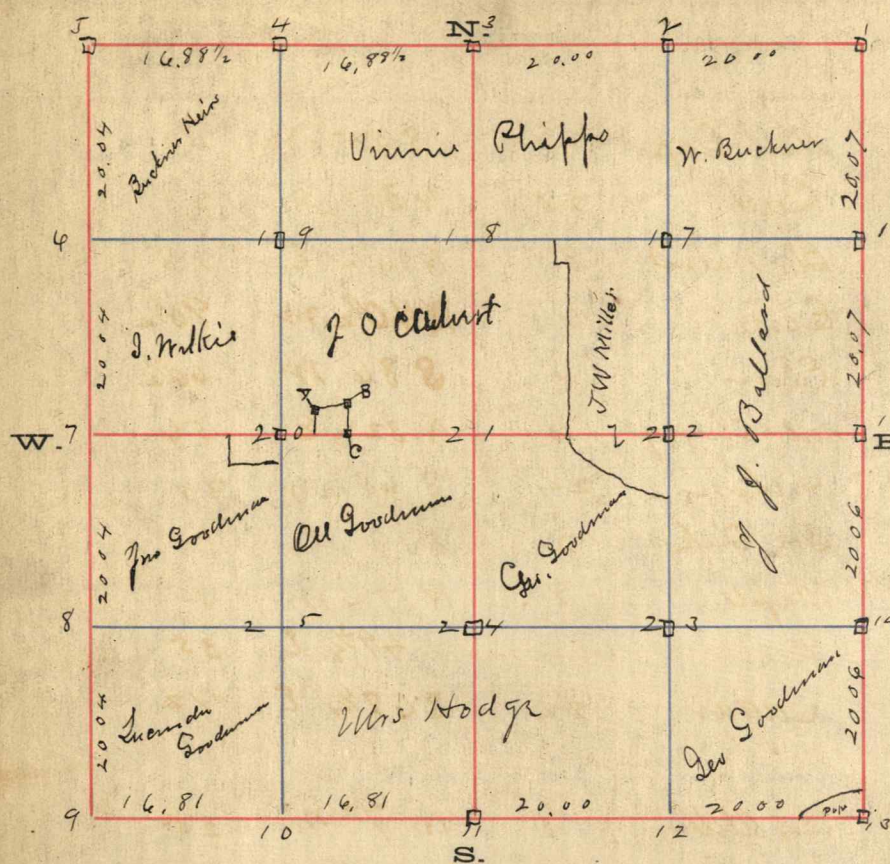 5 4 N. 3 2 1
16.88½ 16.88½ 20.00 20 00
20.04 Buckner Heirs Vinnie Phipps W. Buckner 20.07
6 19 18 17 1
20 04 I. Wilkie J O J W Miller 20.07
A B
W. 7 20 C 21 Z 22 1 E
20 04 Jno Goodman Oll Goodman Geo. Goodman J J. Ballard 20 06
8 25 24 23 14
20 04 Lucinda Goodman Mrs Hodge Geo Goodman 20 06
16,81 16,81 20.00 20 00
9 10 11 12 13
S.